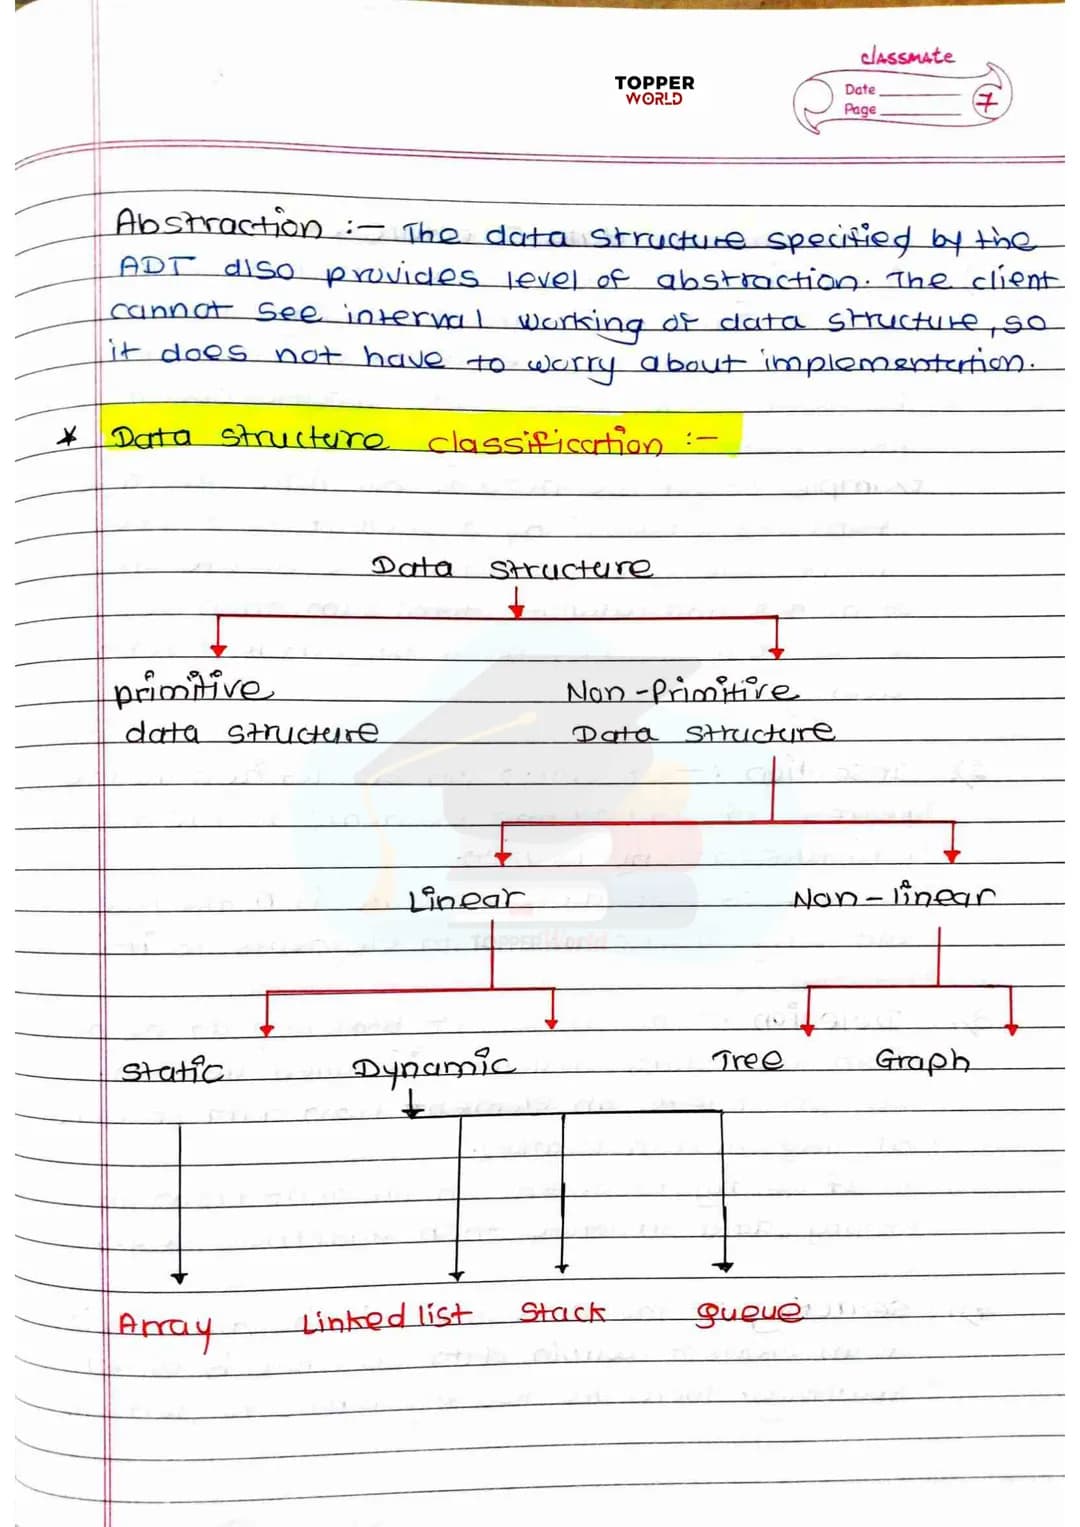 classmate
TOPPER
WORLD
Date
Page
7
Abstraction :- The data structure specified by the
ADT also provides level of abstraction. The client
cannot see interval working of data structure, so
it does not have to worry about implementation.
* Data structure classification :-
Data structure
primitive Non-Primitive
data structure Data structure
Linear Non-linear
Static Dynamic Tree Graph
Array Linked list Stack Queue